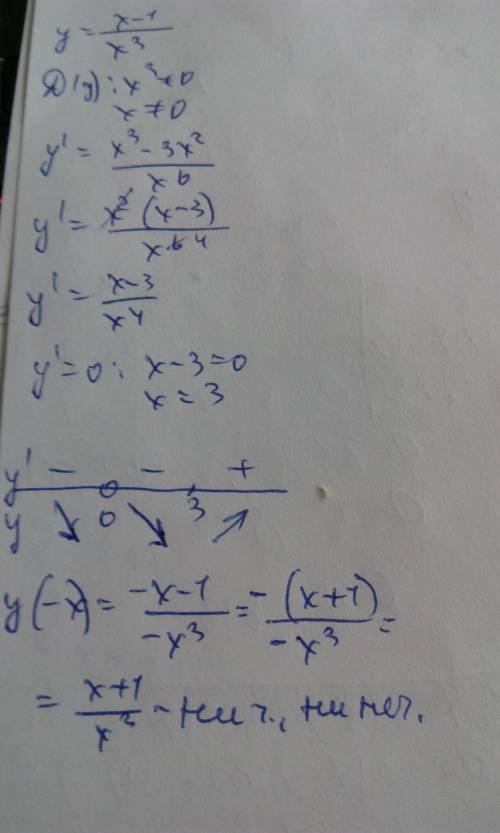 y = (x-1)/x³
D(y): x³≠0
x≠0
y' = (x³ - 3x²)/x⁶
y' = x²(x-3)/x⁶ ⁴
y' = (x-3)/x⁴
y'=0: x-3=0
x = 3
y' - - +
y 0 3
y(-x) = (-x-1)/(-x³) = -(x+1)/(-x³) =
= (x+1)/x³ - ни ч., ни неч.